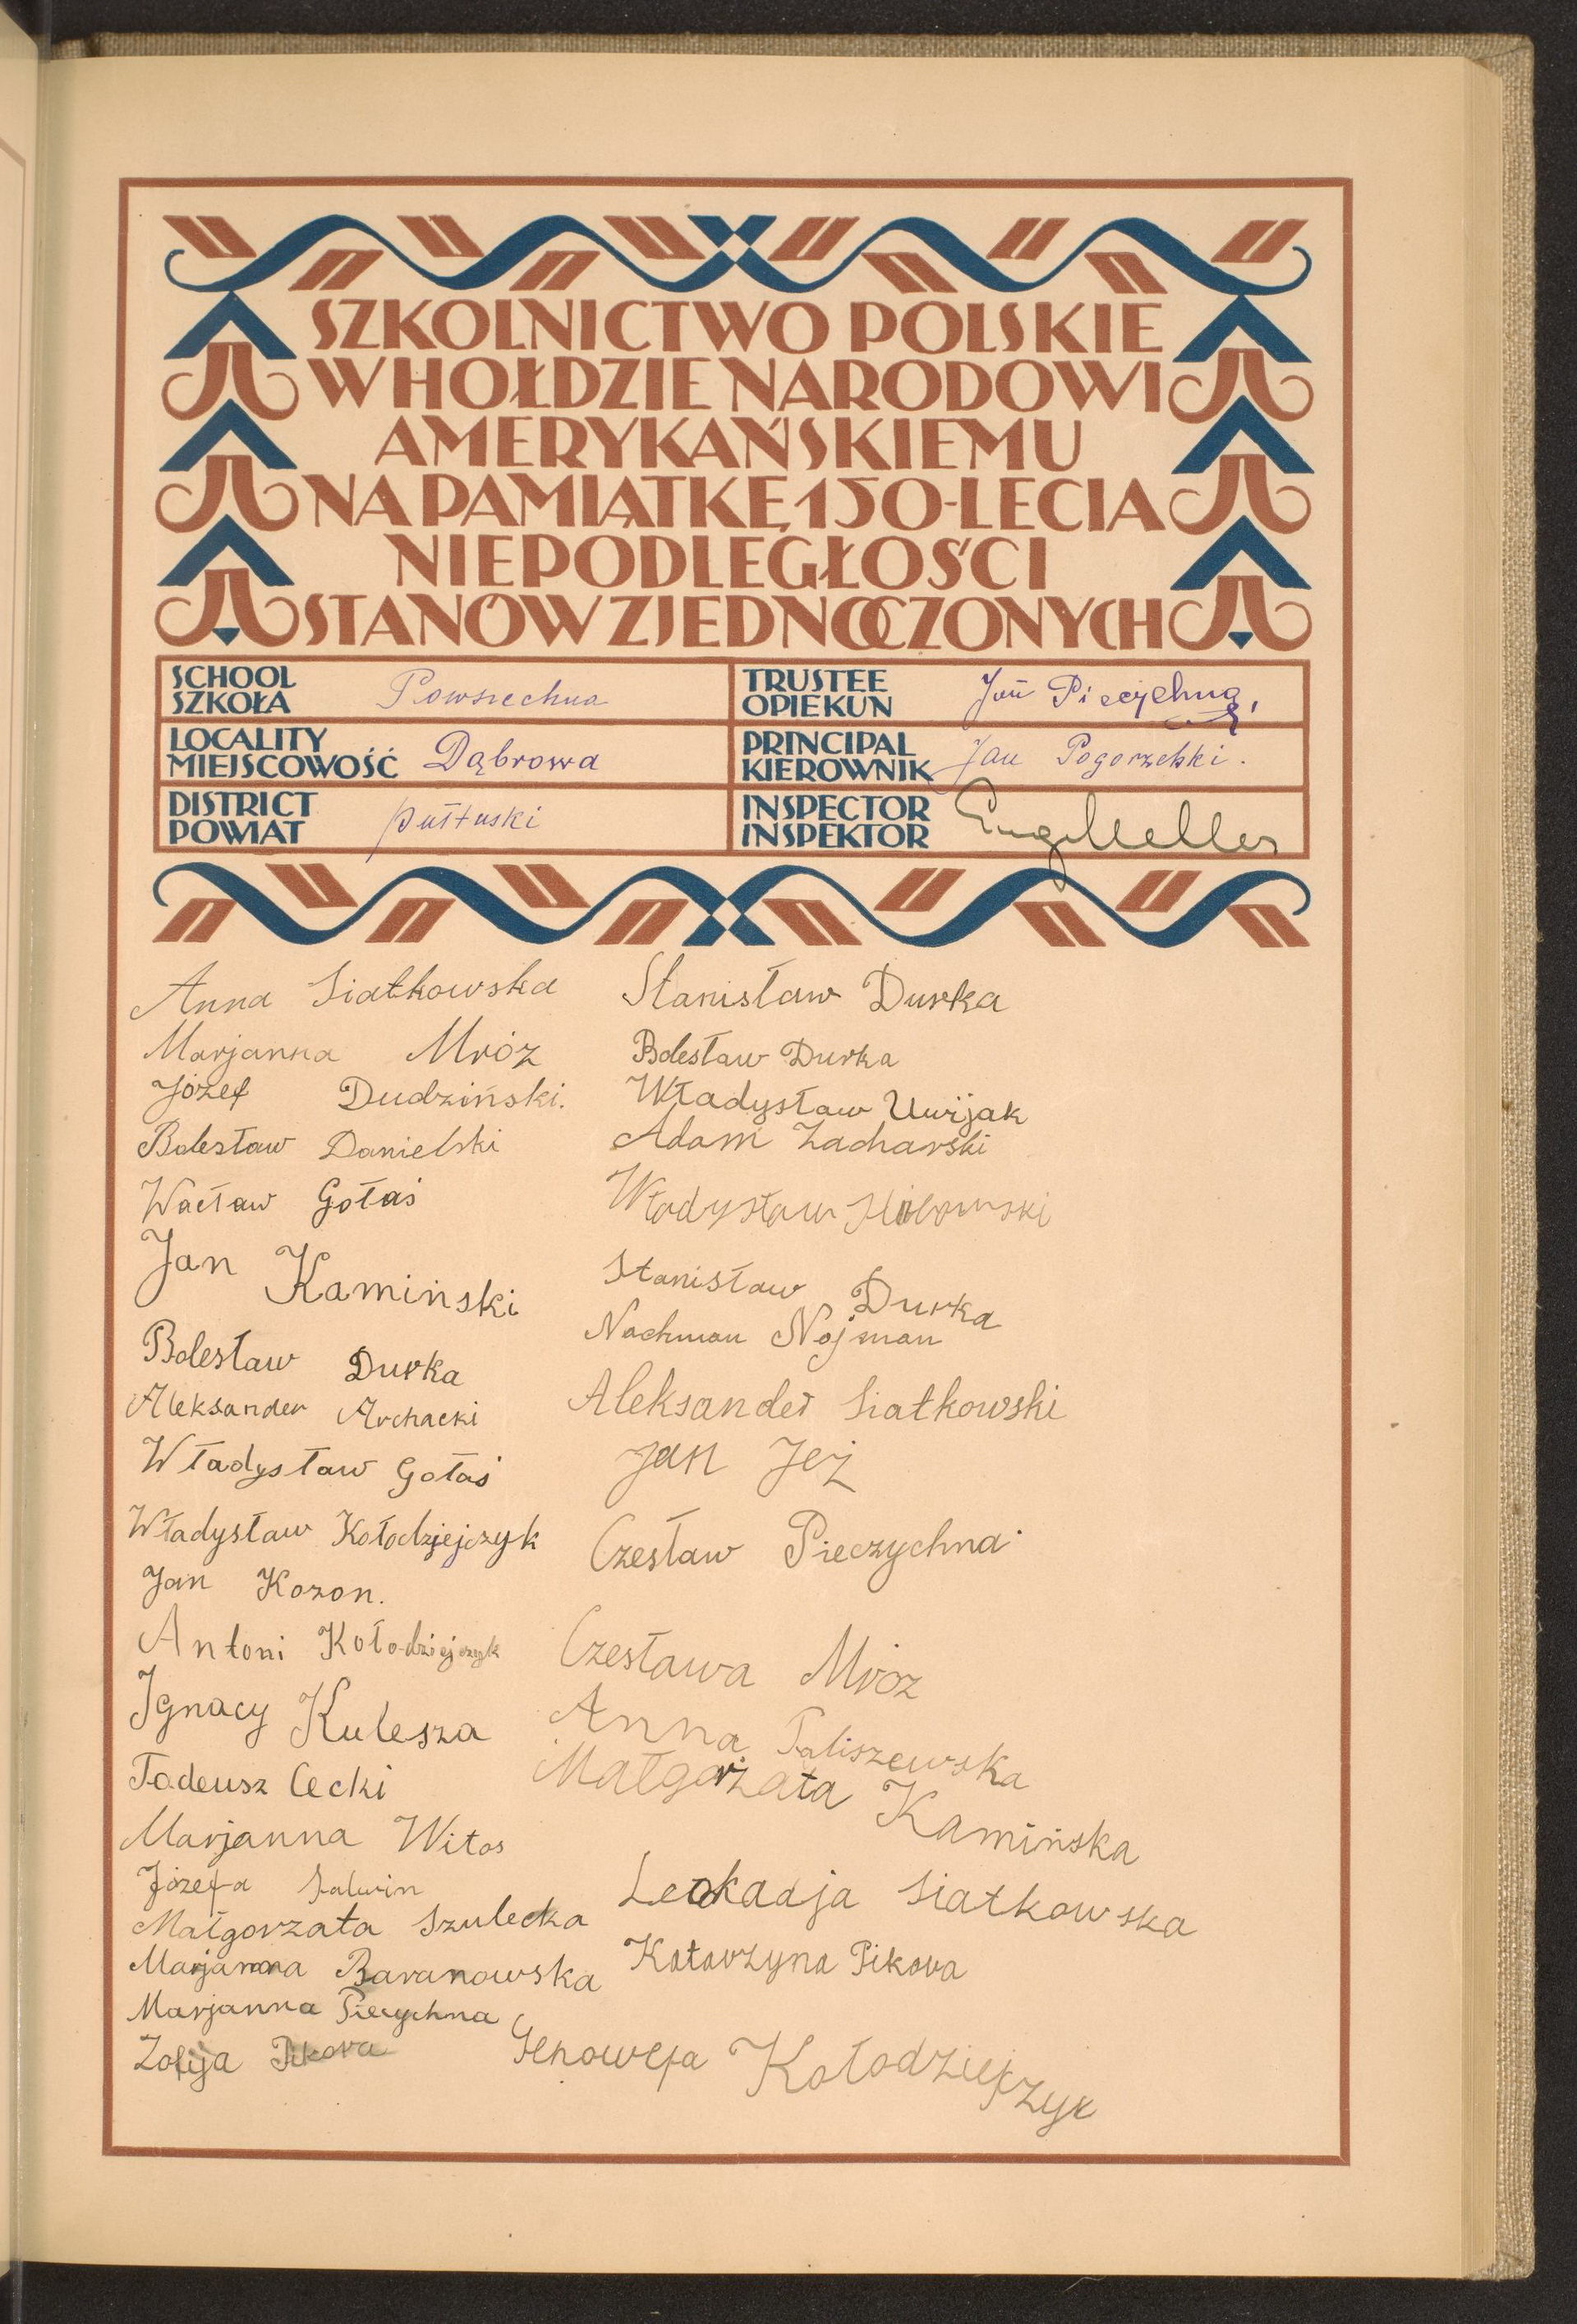 SZKOLNICTWO POLSKIE
W HOŁDZIE NARODOWI
AMERYKAŃSKIEMU
NA PAMIĄTKĘ 150-LECIA
NIEPODLEGŁOŚCI
STANÓW ZJEDNOCZONYCH
SCHOOL
SZKOŁA
Powszechna
TRUSTEE
OPIEKUN
Jan Pieczychna
LOCALITY
MIEJSCOWOŚĆ
Dąbrowa
PRINCIPAL
KIEROWNIK
Jan Pogorzelski.
DISTRICT
POWIAT
pułtuski
INSPECTOR
INSPEKTOR
Anna Siatkowska
Marjanna Mróz
Józef Dudziński.
Bolesław Danielski
Wacław Gołaś
Jan Kamiński
Bolesław Durka
Aleksander Archacki
Władysław Gołaś
Władysław Kołodziejczyk
Jan Kozon.
Antoni Kołodziejczyk
Ignacy Kulesza
Tadeusz Cecki
Marjanna Witos
Józefa Salwin
Małgorzata Szulecka
Marjanna Baranowska
Marjanna Piecychna
Zofija Pikora
Stanisław Durka
Bolesław Durka
Władysław Uwijak
Adam Zacharski
Władysław
Stanisław Durka
Nachman Nojman
Aleksander Siatkowski
Jan Jeż
Czesław Pieczychna
Czesława Mróz
Anna Paliszewska
Małgorzata Kamińska
Leokadja Siatkowska
Katarzyna Pikora
Genowefa Kołodziejczyk